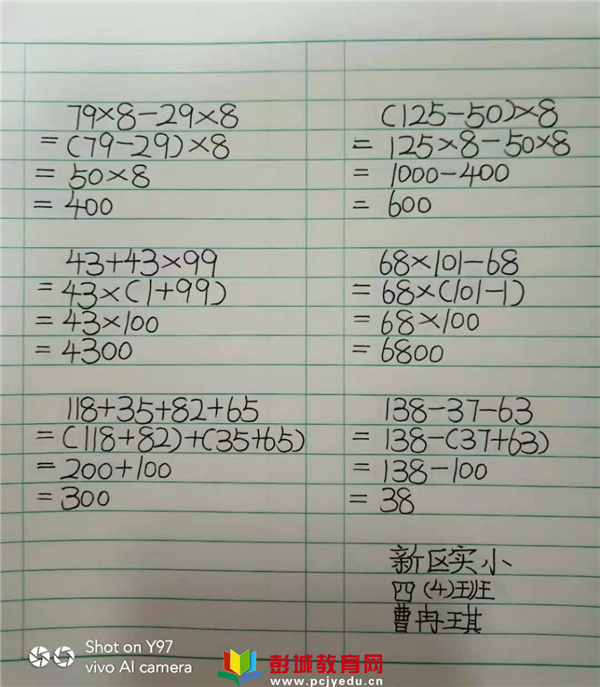 79×8-29×8
=(79-29)×8
=50×8
=400
(125-50)×8
=125×8-50×8
=1000-400
=600
43+43×99
=43×(1+99)
=43×100
=4300
68×101-68
=68×(101-1)
=68×100
=6800
118+35+82+65
=(118+82)+(35+65)
=200+100
=300
138-37-63
=138-(37+63)
=138-100
=38
新区实小
四(4)班
曹冉琪
Shot on Y97
vivo AI camera
彭城教育网
www.pcjyedu.cn